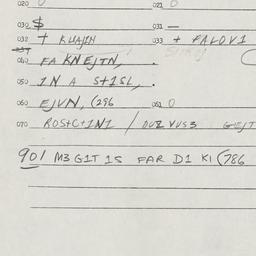 020 0 021 0
030 $ 031 —
032 + KUAJIN 033 + FALOV1
040 FA KNEJTN, .
050 1N A S+1SL, .
060 EJVN, (296 061 0
070 ROS+C+1N1 / DUZ VUS3 GEJT
901 M3 G1T 1S FAR D1 K1 (786